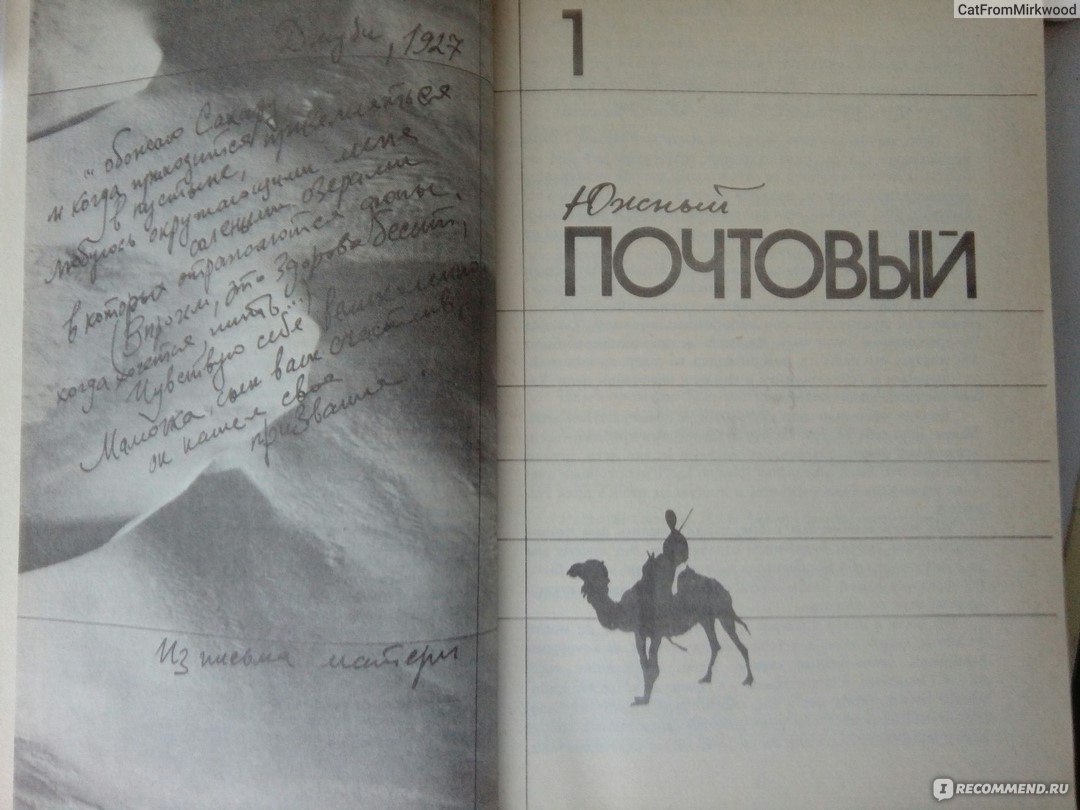 Джуби, 1927
"обожаю Сахару
и когда приходится приземляться
в пустыне,
любуюсь окружающими меня
солеными озерами
в которых отражаются дюны.
(Впрочем, это здорово бесит,
когда хочется пить...)
Чувствую себя великолепно
Мамочка, сын ваш счастлив,
он нашел свое
призвание.
Из письма матери
1
Южный
ПОЧТОВЫЙ
CatFromMirkwood
I RECOMMEND.RU